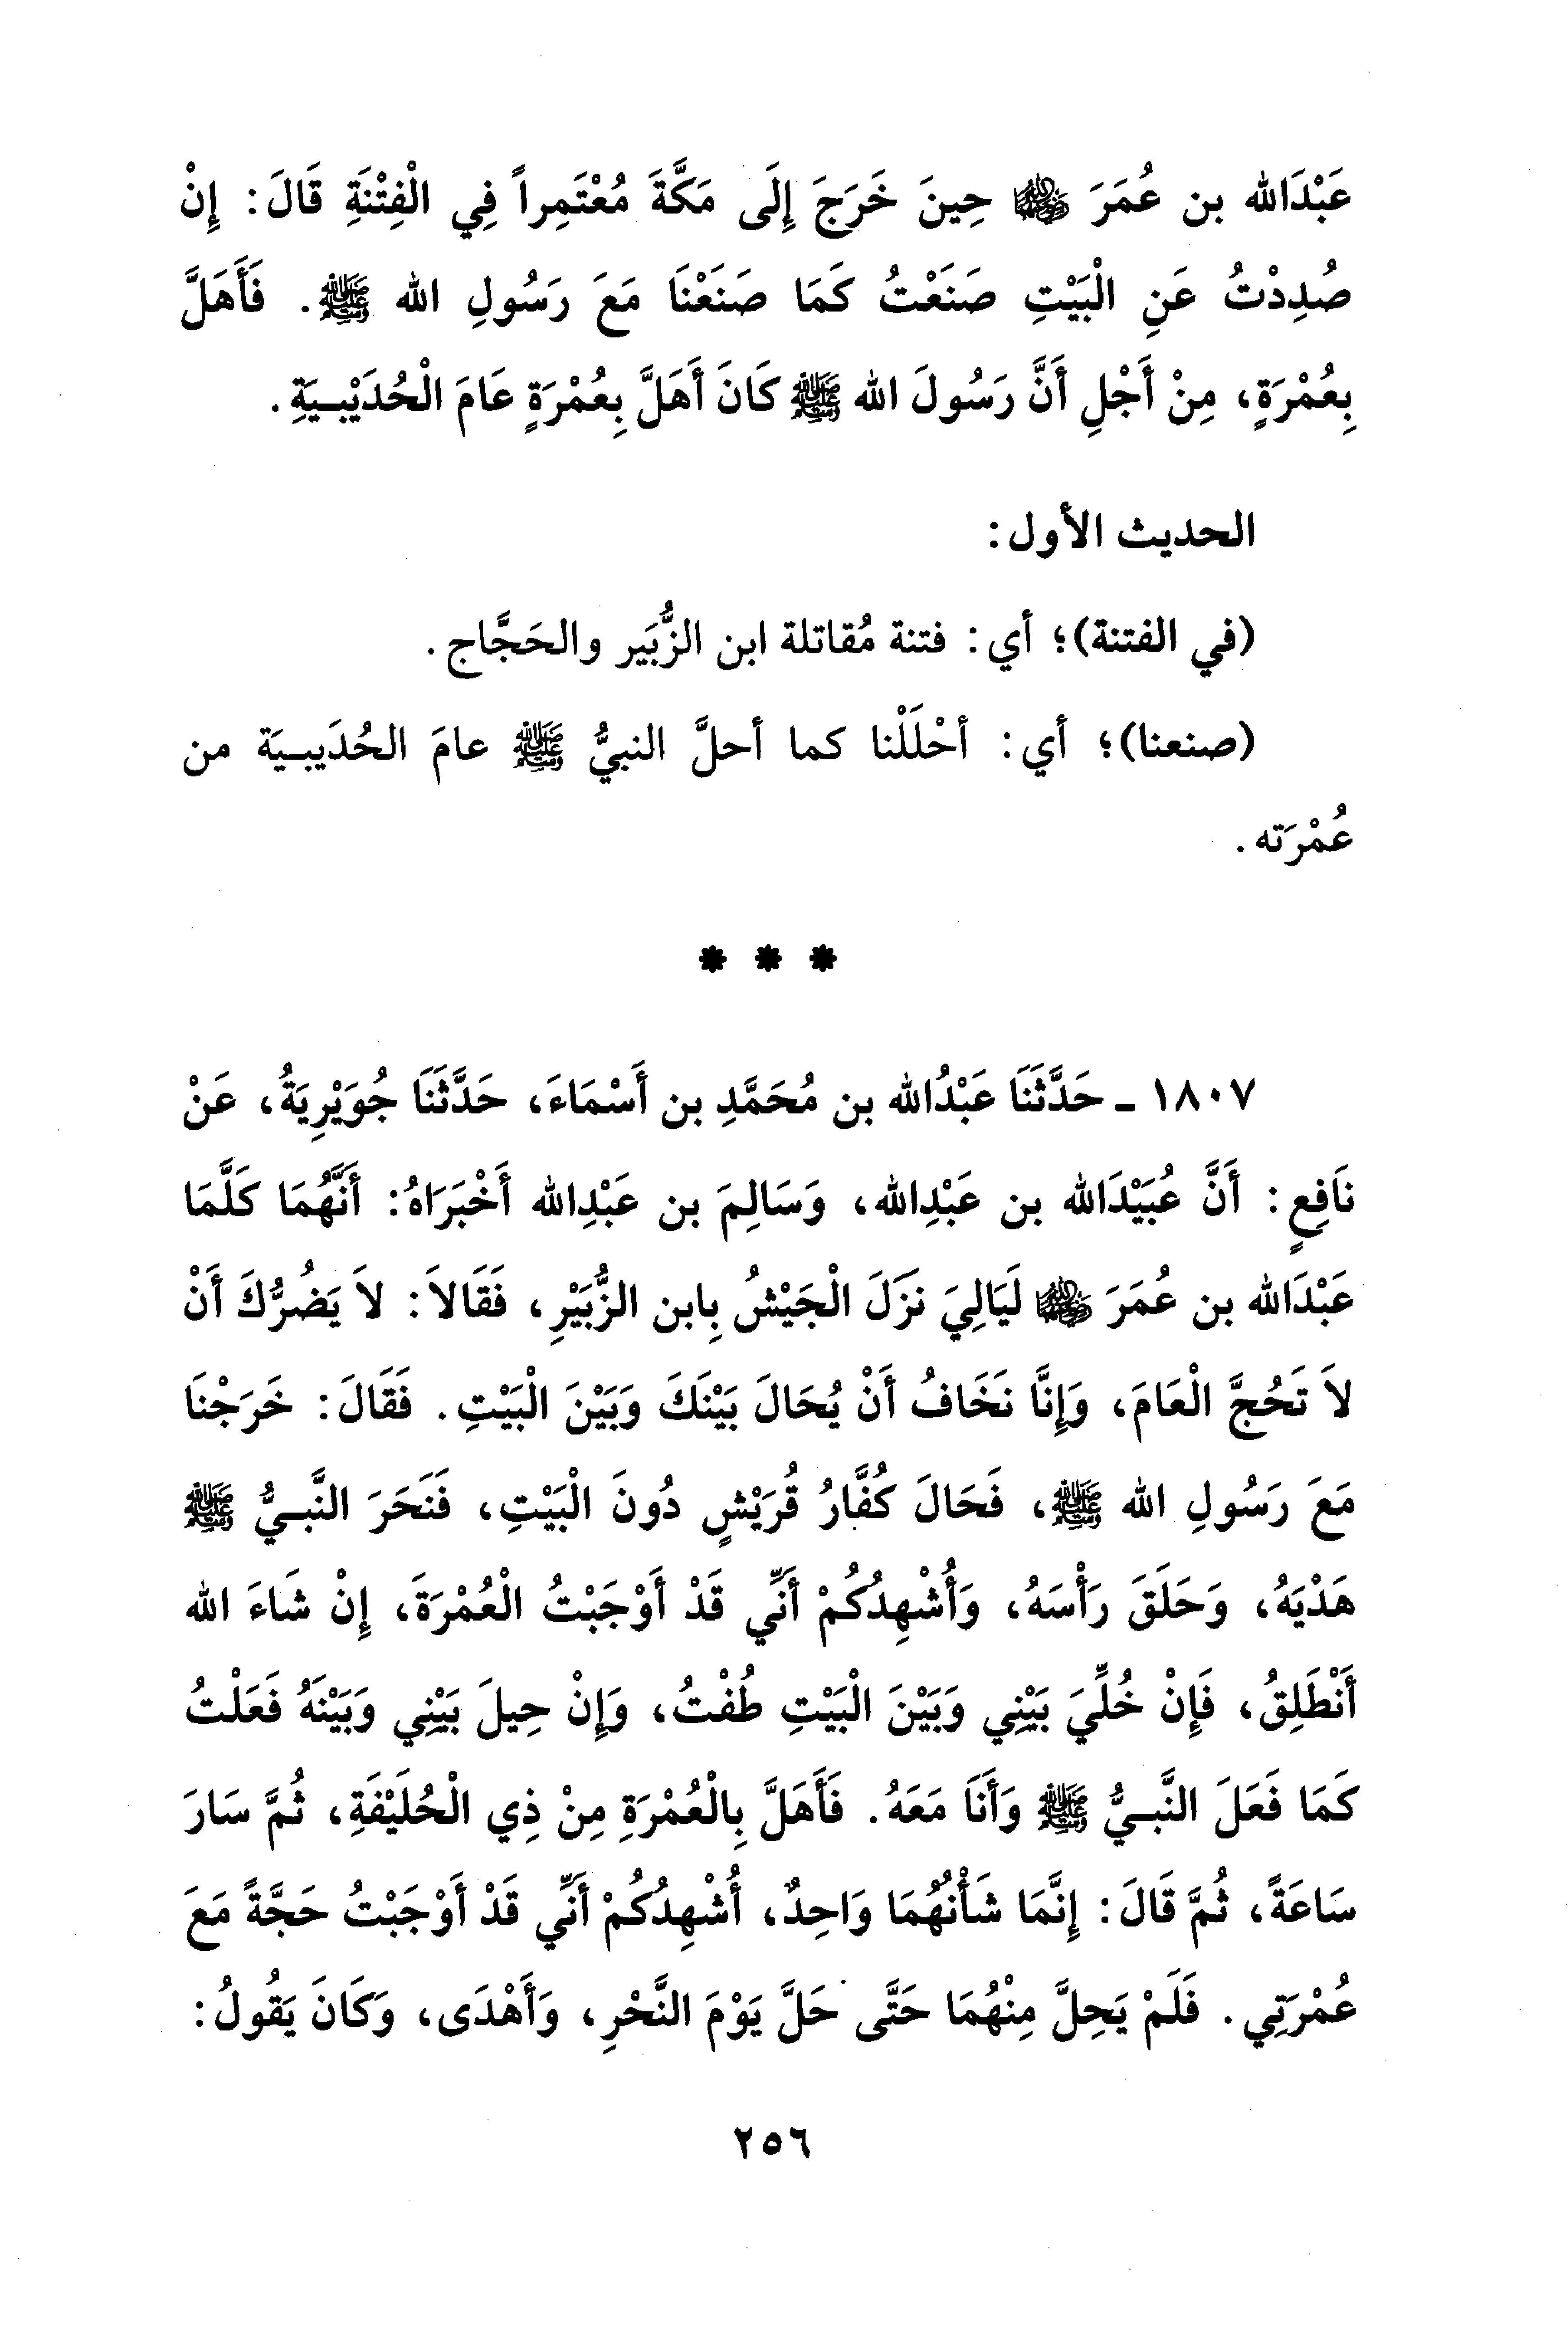 عَبْدَالله بن عُمَرَ ﵁ حِينَ خَرَجَ إِلَى مَكَّةَ مُعْتَمِراً فِي الْفِتْنَةِ قَالَ: إِنْ
صُدِدْتُ عَنِ الْبَيْتِ صَنَعْتُ كَمَا صَنَعْنَا مَعَ رَسُولِ الله ﷺ. فَأَهَلَّ
بِعُمْرَةٍ، مِنْ أَجْلِ أَنَّ رَسُولَ الله ﷺ كَانَ أَهَلَّ بِعُمْرَةٍ عَامَ الْحُدَيْبِيَةِ.
الحديث الأول:
(في الفتنة)؛ أي: فتنة مُقاتلة ابن الزُّبَير والحَجَّاج.
(صنعنا)؛ أي: أحْلَلْنا كما أحلَّ النبيُّ ﷺ عامَ الحُدَيبيَة من
عُمْرَته.
* * *
١٨٠٧ - حَدَّثَنَا عَبْدُالله بن مُحَمَّدِ بن أَسْمَاءَ، حَدَّثَنَا جُوَيْرِيَةُ، عَنْ
نَافِعٍ: أَنَّ عُبَيْدَالله بن عَبْدِالله، وَسَالِمَ بن عَبْدِالله أَخْبَرَاهُ: أَنَّهُمَا كَلَّمَا
عَبْدَالله بن عُمَرَ ﵁ لَيَالِيَ نَزَلَ الْجَيْشُ بِابن الزُّبَيْرِ، فَقَالاَ: لاَ يَضُرُّكَ أَنْ
لاَ تَحُجَّ الْعَامَ، وَإِنَّا نَخَافُ أَنْ يُحَالَ بَيْنَكَ وَبَيْنَ الْبَيْتِ. فَقَالَ: خَرَجْنَا
مَعَ رَسُولِ الله ﷺ، فَحَالَ كُفَّارُ قُرَيْشٍ دُونَ الْبَيْتِ، فَنَحَرَ النَّبِيُّ ﷺ
هَدْيَهُ، وَحَلَقَ رَأْسَهُ، وَأُشْهِدُكُمْ أَنِّي قَدْ أَوْجَبْتُ الْعُمْرَةَ، إِنْ شَاءَ الله
أَنْطَلِقُ، فَإِنْ خُلِّيَ بَيْنِي وَبَيْنَ الْبَيْتِ طُفْتُ، وَإِنْ حِيلَ بَيْنِي وَبَيْنَهُ فَعَلْتُ
كَمَا فَعَلَ النَّبِيُّ ﷺ وَأَنَا مَعَهُ. فَأَهَلَّ بِالْعُمْرَةِ مِنْ ذِي الْحُلَيْفَةِ، ثُمَّ سَارَ
سَاعَةً، ثُمَّ قَالَ: إِنَّمَا شَأْنُهُمَا وَاحِدٌ، أُشْهِدُكُمْ أَنِّي قَدْ أَوْجَبْتُ حَجَّةً مَعَ
عُمْرَتِي. فَلَمْ يَحِلَّ مِنْهُمَا حَتَّى حَلَّ يَوْمَ النَّحْرِ، وَأَهْدَى، وَكَانَ يَقُولُ:
٢٥٦